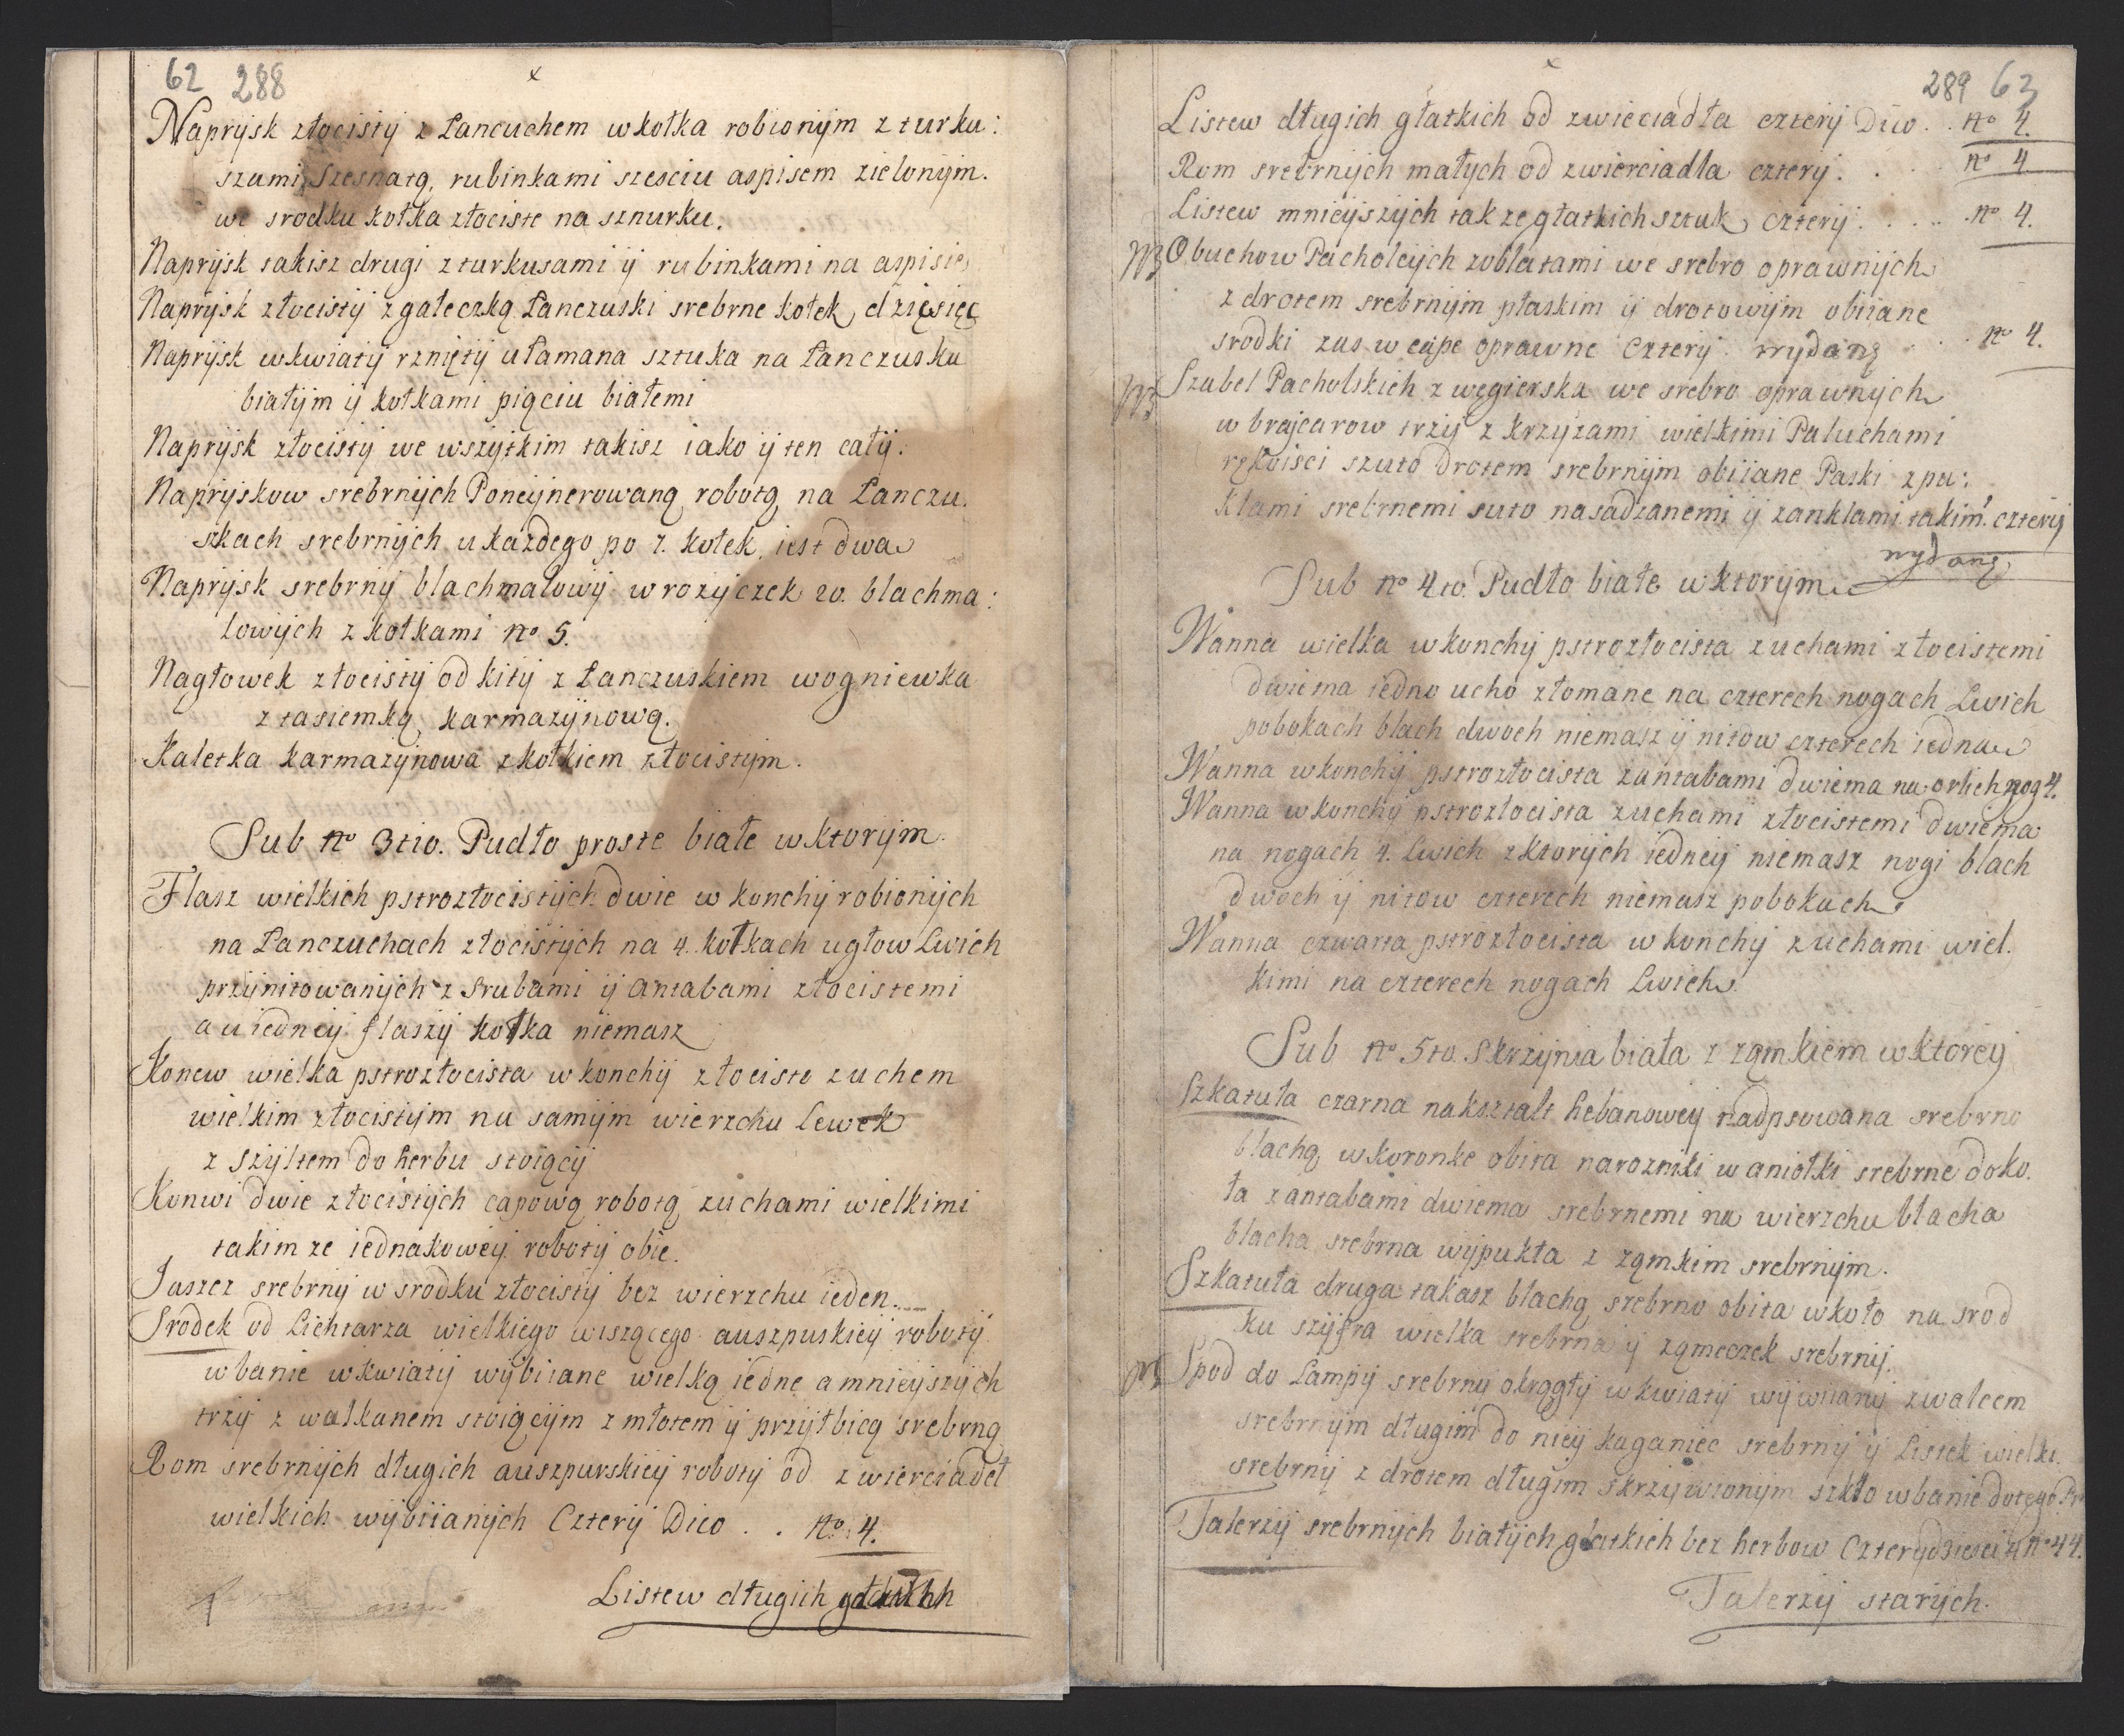 62 288
x
Naprysk złocisty z Łancuchem w kołka robionym z turku:
szami Szesnatą, rubinkami szesciu aspisem zielonym.
we srodku kołka złociste na sznurku.
Naprysk takisz drugi z turkusami y rubinkami na aspisie
Naprysk złocisty z gałeczką Łanczuski srebrne kołek dzięsięć
Naprysk w kwiaty rznięty ułamana sztuka na Łanczusku
białym y kołkami pięciu białemi
Naprysk złocisty we wszytkim takisz iako y ten cały.
Napryskow srebrnych Poncynerowaną robotą na Łanczu.
szkach srebrnych u każdego po 7. kołek iest dwa
Naprysk srebrny blachmalowy w rozyczek 20. blachma:
lowych z kołkami no 5.
Nagłowek złocisty od kity z Łanczuskiem w ogniewka
z tasiemką karmazynową.
Kaletka karmazynowa z kołkiem złocistym.
Sub no 3tio. Pudło proste białe w ktorym.
Flasz wielkich pstrozłocistych dwie w konchy robionych
na Łanczuchach złocistych na 4. kołkach u głow Lwich
przynitowanych z srubami y antabami złocistemi
a u iedney flaszy kołka niemasz
Konew wielka pstrozłocista w konchy złocisto z uchem
wielkim złocistym na samym wierzchu Lewek
z szyltem do herbu stoiący
Konwi dwie złocistych capową robotą z uchami wielkimi
takim ze iednakowey roboty obie.
Jaszcz srebrny w srodku złocisty bez wierzchu ieden.
Srodek od Lichtarza wielkiego wiszącego auszpuskiey roboty
w banie w kwiaty wybiiane wielką iedne a mnieyszych
trzy z walkanem stoiącym z młotem y przyłbicą srebrną
Rom srebrnych długich auszpurskiey roboty od zwierciadeł
wielkich wybiianych Cztery Dico . . no 4.
Listew długich
289 63
x
Listew długich głatkich od zwieciadła cztery Dico . . no 4.
Rom srebrnych małych od zwierciadla cztery. . . . no 4.
Listew mnieyszych takze głatkich sztuk cztery. . . . no 4.
Obuchow Pacholcych z oblatami we srebro oprawnych
z drotem srebrnym płaskim y drotowym obiiane
srodki zas w capę oprawne Cztery. wydaną . . no 4.
Szabel Pacholskich z węgierska we srebro oprawnych
w brajcarow trzy z krzyzami wielkimi Paluchami
rękoisci szuto drotem srebrnym obiiane Paski z pu:
klami srebrnemi suto nasadzanemi y zanklami takim. cztery
wydaną
Sub no 4to. Pudło białe w ktorym
Wanna wielka w konchy pstrozłocista z uchami złocistemi
dwiema iedno ucho złomane na czterech nogach Lwich
po bokach blach dwoch niemasz y nitow czterech iedna
Wanna w konchy pstrozłocista z antabami dwiema na orlich nog 4.
Wanna w konchy pstrozłocista z uchami złocistemi dwiema
na nogach 4. Lwich z ktorych iedney niemasz nogi blach
dwoch y nitow czterech niemasz po bokach
Wanna czwarta pstrozłocista w konchy z uchami wiel.
kimi na czterech nogach Lwich
Sub no 5to. Skrzynia biała z ząmkiem w ktorey
Szkatuła czarna na kształt hebanowey nadpsowana srebrno
blachą w koronke obita narozniki w aniołki srebrne doko.
ła z antabami dwiema srebrnemi na wierzchu blacha
blacha srebrna wypukła z ząmkim srebrnym.
Szkatuła druga takasz blachą srebrno obita w koło na srod
ku szyfra wielka srebrna y ząmeczek srebrny.
Spod do Lampy srebrny okrągły w kwiaty wywiiany z walcem
srebrnym długim do niey kaganiec srebrny y Listek wielki.
srebrny z drotem długim skrzywionym szkło w banie do tego
Talerzy srebrnych białych głatkich bez herbow Czterydziesci 4 no 44.
Talerzy starych.